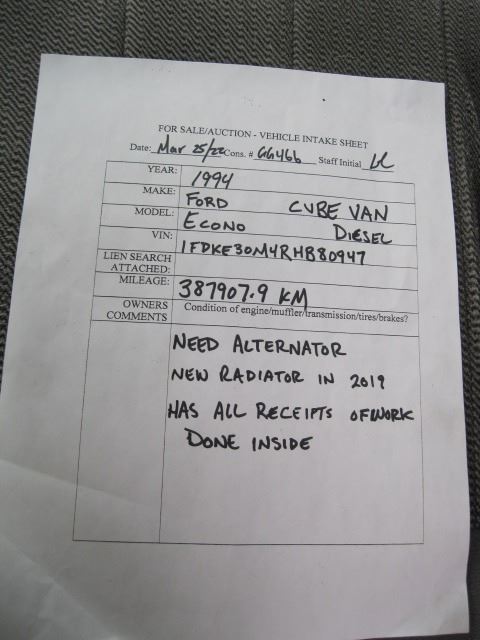 FOR SALE/AUCTION - VEHICLE INTAKE SHEET
Date: Mar 25/22 Cons. # GG466 Staff Initial
YEAR: 1994
MAKE: FORD CUBE VAN
MODEL: ECONO DIESEL
VIN: 1FDKE30M4RHB80947
LIEN SEARCH
ATTACHED:
MILEAGE: 387907.9 KM
OWNERS Condition of engine/muffler/transmission/tires/brakes?
COMMENTS
NEED ALTERNATOR
NEW RADIATOR IN 2019
HAS ALL RECEIPTS OF WORK
DONE INSIDE